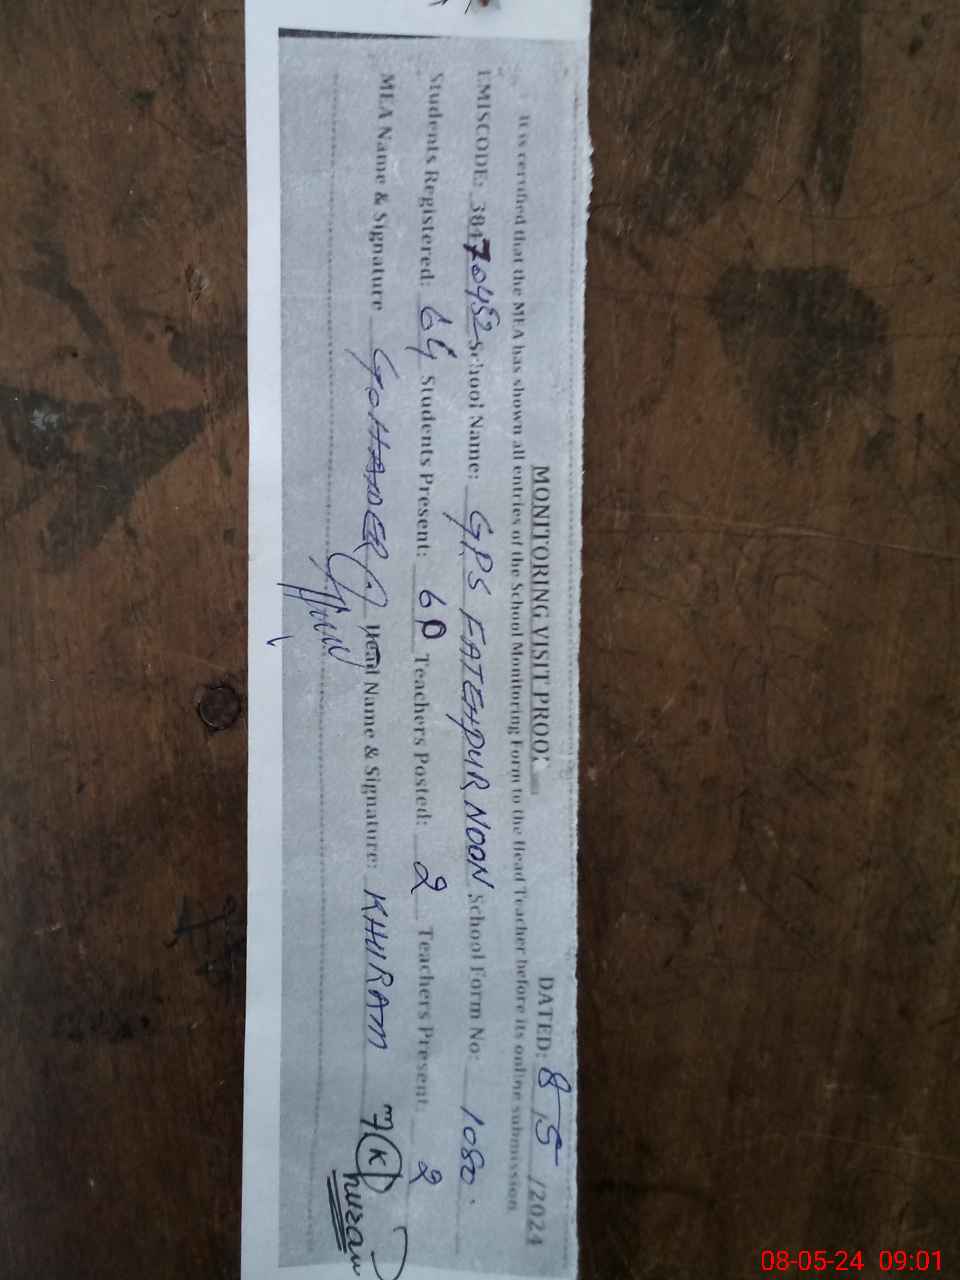 MONITORING VISIT PROOF DATED: 8/5/2024
It is certified that the MEA has shown all entries of the School Monitoring Form to the Head Teacher before its online submission
EMISCODE: 38470452 School Name: GPS FATEHPUR NOON School Form No: 1080.
Students Registered: 64 Students Present: 60 Teachers Posted: 2 Teachers Present: 2
MEA Name & Signature Head Name & Signature: KHURAM Khuram
08-05-24 09:01